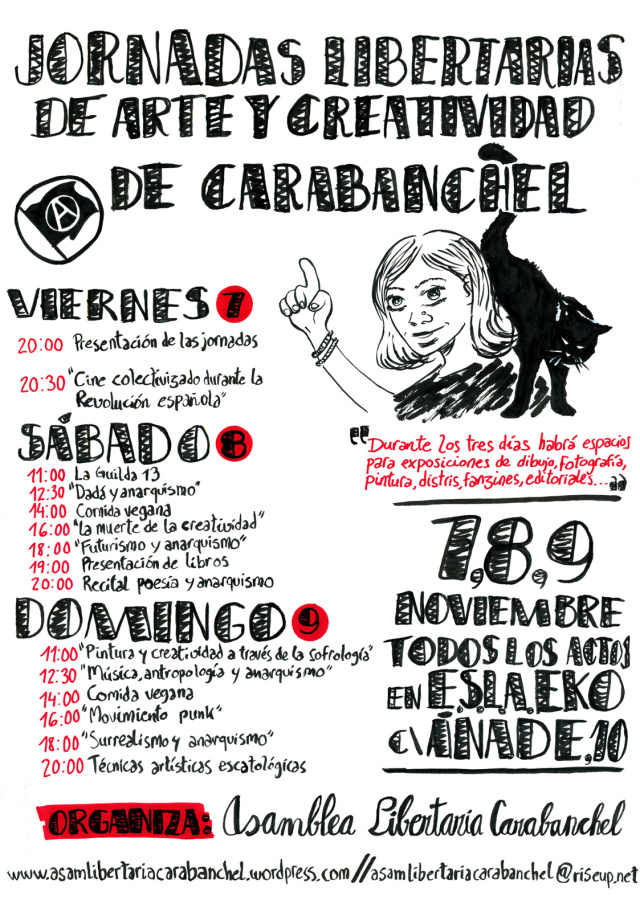 JORNADAS LIBERTARIAS
DE ARTE Y CREATIVIDAD
DE CARABANCHEL
A
VIERNES 7
20:00 Presentación de las jornadas
20:30 "Cine colectivizado durante la
Revolución española"
SÁBADO 8
11:00 La Guilda 13
12:30 "Dadá y anarquismo"
14:00 Comida vegana
16:00 "La muerte de la creatividad"
18:00 "Futurismo y anarquismo"
19:00 Presentación de libros
20:00 Recital poesía y anarquismo
DOMINGO 9
11:00 "Pintura y creatividad a través de la sofrología"
12:30 "Música, antropología y anarquismo"
14:00 Comida vegana
16:00 "Movimiento punk"
18:00 "Surrealismo y anarquismo"
20:00 Técnicas artísticas escatológicas
"Durante los tres días habrá espacios
para exposiciones de dibujo, fotografía,
pintura, distris, fanzines, editoriales..."
7, 8, 9
NOVIEMBRE
TODOS LOS ACTOS
EN E.S.L.A. EKO
C\ ÁNADE, 10
ORGANIZA: Asamblea Libertaria Carabanchel
www.asamlibertariacarabanchel.wordpress.com // asamlibertariacarabanchel@riseup.net